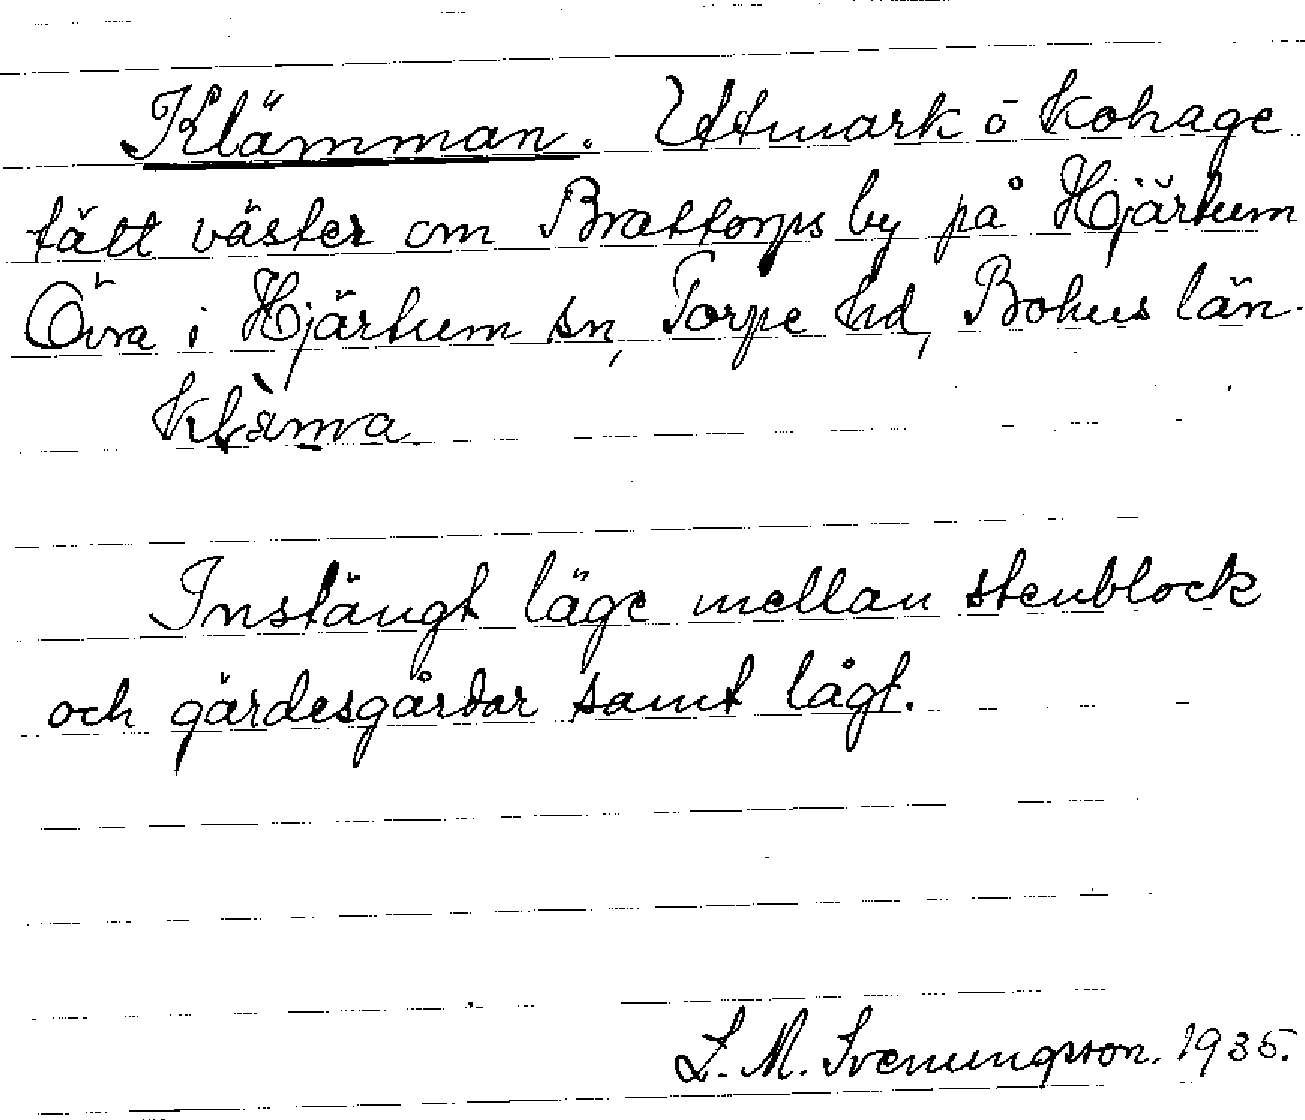 Klämman. Utmark o kohage
tätt väster om Brattorps by på Hjärtum
Övra i Hjärtum sn, Torpe hd, Bohus län.
Instängt läge mellan stenblock
och gärdesgårdar samt lågt.
S. M. Svenungsson. 1935.